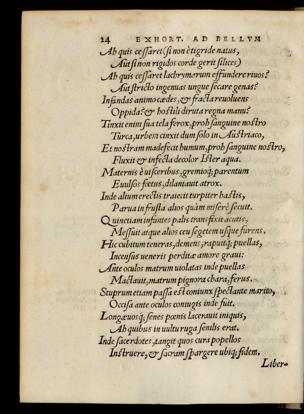 24 EXHORT. AD BELLVM
Ah quis cessaret (si non è tigride natus,
Aut si non rigidos corde gerit silices)
Ah quis cessaret lachrymarum effundere riuos?
Aut stricto ingenuas ungue secare genas?
Infandas animo cædes, & fracta reuoluens
Oppida? & hostili diruta regna manu?
Tinxit enim sua tela ferox, proh sanguine nostro
Turca, urbem cinxit dum solo in Austriaco,
Et nostram madefecit humum, proh sanguine nostro,
Fluxit & infecta decolor Ister aqua.
Maternis è uisceribus, gremioq; parentum
Euulsos fœtus, dilaniauit atrox.
Inde alium erectis traiecit turpiter hastis,
Parua in frusta alios quàm miserè secuit.
Quinetiam infantes palis transfixit acutis,
Messuit atque alios ceu segetem usque furens.
Hic cubitum teneras, demens, raputq; puellas,
Incensus ueneris perditæ amore graui:
Ante oculos matrum uiolatas inde puellas
Mactauit, matrum pignora chara, ferus.
Stuprum etiam passa est coniunx spectante marito,
Occisa ante oculos coniugis inde fuit.
Longæuosq; senes pœnis lacerauit iniquis,
Ah quibus in uultu ruga senilis erat.
Inde sacerdotes, tangit quos cura popellos
Instruere, & sacram spargere ubiq; fidem.
Liber-